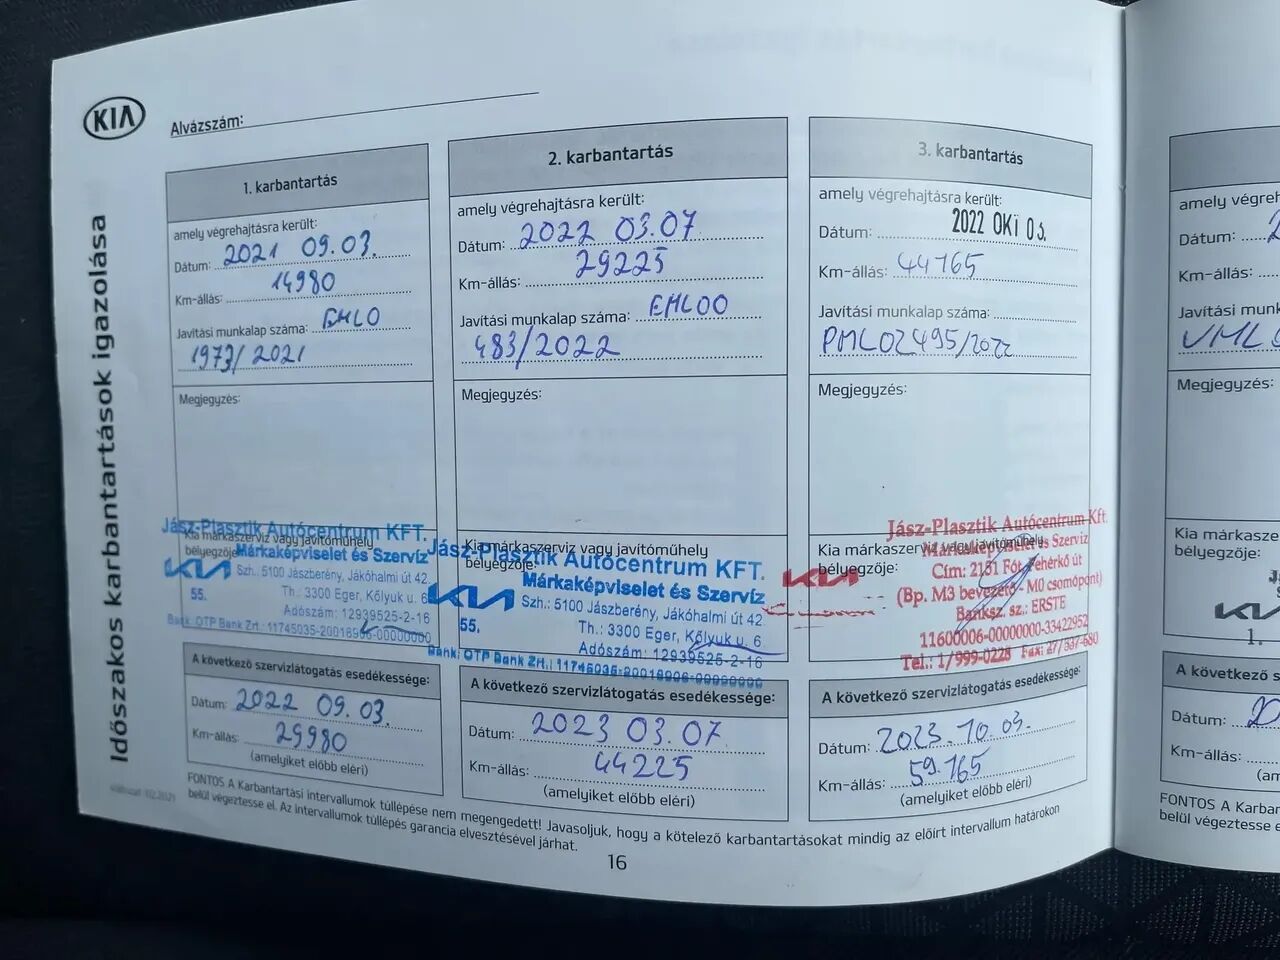 KIA
Alvázszám:
Időszakos karbantartások igazolása
1. karbantartás
amely végrehajtásra került:
Dátum: 2021 09.03.
14980
Km-állás:
Javítási munkalap száma: EMLO
1973/2021
Megjegyzés:
Kia márkaszerviz vagy javítóműhely
bélyegzője:
Jász-Plasztik Autócentrum KFT.
Márkaképviselet és Szervíz
KIA
Szh.: 5100 Jászberény, Jákóhalmi út 42.
55.
Th.: 3300 Eger, Kőlyuk u. 6
Adószám: 12939525-2-16
Bank: OTP Bank Zrt.: 11745035-20018906-00000000
A következő szervizlátogatás esedékessége:
Dátum: 2022 09.03.
Km-állás: 29980
(amelyiket előbb eléri)
2. karbantartás
amely végrehajtásra került:
Dátum: 2022 03.07
Km-állás: 29225
Javítási munkalap száma: EMLOO
483/2022
Megjegyzés:
Kia márkaszerviz vagy javítóműhely
bélyegzője:
Jász-Plasztik Autócentrum KFT.
Márkaképviselet és Szervíz
KIA
Szh.: 5100 Jászberény, Jákóhalmi út 42
55.
Th.: 3300 Eger, Kőlyuk u. 6
Adószám: 12939525-2-16
Bank: OTP Bank Zrt.: 11745035-20018906-00000000
A következő szervizlátogatás esedékessége:
Dátum: 2023 03.07
Km-állás: 44225
(amelyiket előbb eléri)
3. karbantartás
amely végrehajtásra került:
Dátum: 2022 OKT 03.
Km-állás: 44165
Javítási munkalap száma:
PML02495/2022
Megjegyzés:
Kia márkaszerviz vagy javítóműhely
bélyegzője:
Jász-Plasztik Autócentrum Kft.
Márkaképviselet és Szerviz
KIA
Cím: 2151 Fót, Fehérkő út
(Bp. M3 bevezető - M0 csomópont)
Banksz. sz.: ERSTE
11600006-00000000-33422952
Tel.: 1/999-0228 Fax: 27/537-680
A következő szervizlátogatás esedékessége:
Dátum: 2023.10.03.
Km-állás: 59.165
(amelyiket előbb eléri)
FONTOS A Karbantartási intervallumok túllépése nem megengedett! Javasoljuk, hogy a kötelező karbantartásokat mindig az előírt intervallum határokon
belül végeztesse el. Az intervallumok túllépés garancia elvesztésével járhat.
16
amely végre
Dátum:
Km-állás:
Javítási mu
VML
Megjegyzés:
Kia márkas
bélyegzője:
KIA
1.
A következő s
Dátum: 20
Km-állás:
(am
FONTOS A Karban
belül végeztesse e